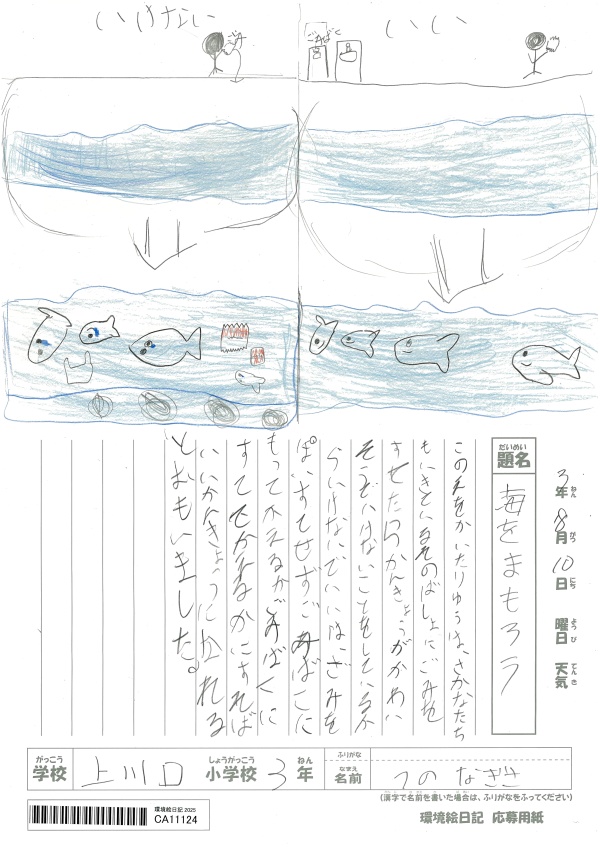 いけない
いい
ごみ
ごみばく
だいめい
題名
海をまもろう
3年8月10日 曜日 天気
ねん がつ にち ようび てんき
この文をかいたりゆうは、さかなたち
もいきているそのばしょにごみを
すせたらかんきょうがかわい
そうでいけないことをしているか
らいけないでいいは、ごみを
ぽいすてせずごみばこに
もってかえるかごみばくに
すててかえるかにすれば
いいかんきょうにかれる
とおもいました。
がっこう
学校
上川口
しょうがっこう
小学校
3
ねん
年
ふりがな
なまえ
名前
つの なぎさ
(漢字で名前を書いた場合は、ふりがなをふってください)
環境絵日記 2025
CA11124
環境絵日記 応募用紙